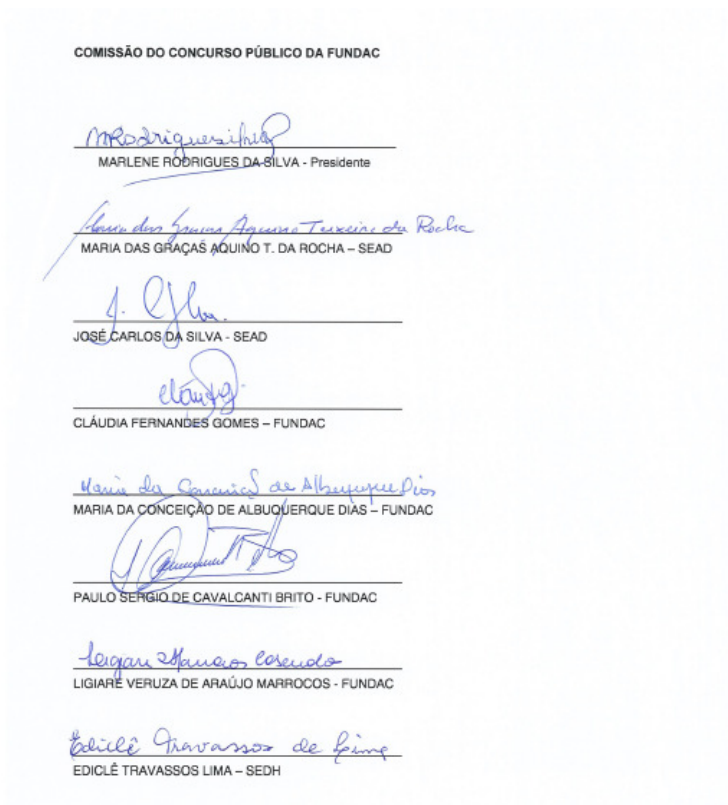 COMISSÃO DO CONCURSO PÚBLICO DA FUNDAC
MARLENE RODRIGUES DA SILVA - Presidente
Maria das Graças Aquino Teixeira da Rocha
MARIA DAS GRAÇAS AQUINO T. DA ROCHA – SEAD
JOSÉ CARLOS DA SILVA - SEAD
CLÁUDIA FERNANDES GOMES – FUNDAC
Maria da Conceição de Albuquerque Dias
MARIA DA CONCEIÇÃO DE ALBUQUERQUE DIAS – FUNDAC
PAULO SERGIO DE CAVALCANTI BRITO - FUNDAC
LIGIARE VERUZA DE ARAÚJO MARROCOS - FUNDAC
Ediclê Travassos de Lima
EDICLÊ TRAVASSOS LIMA – SEDH